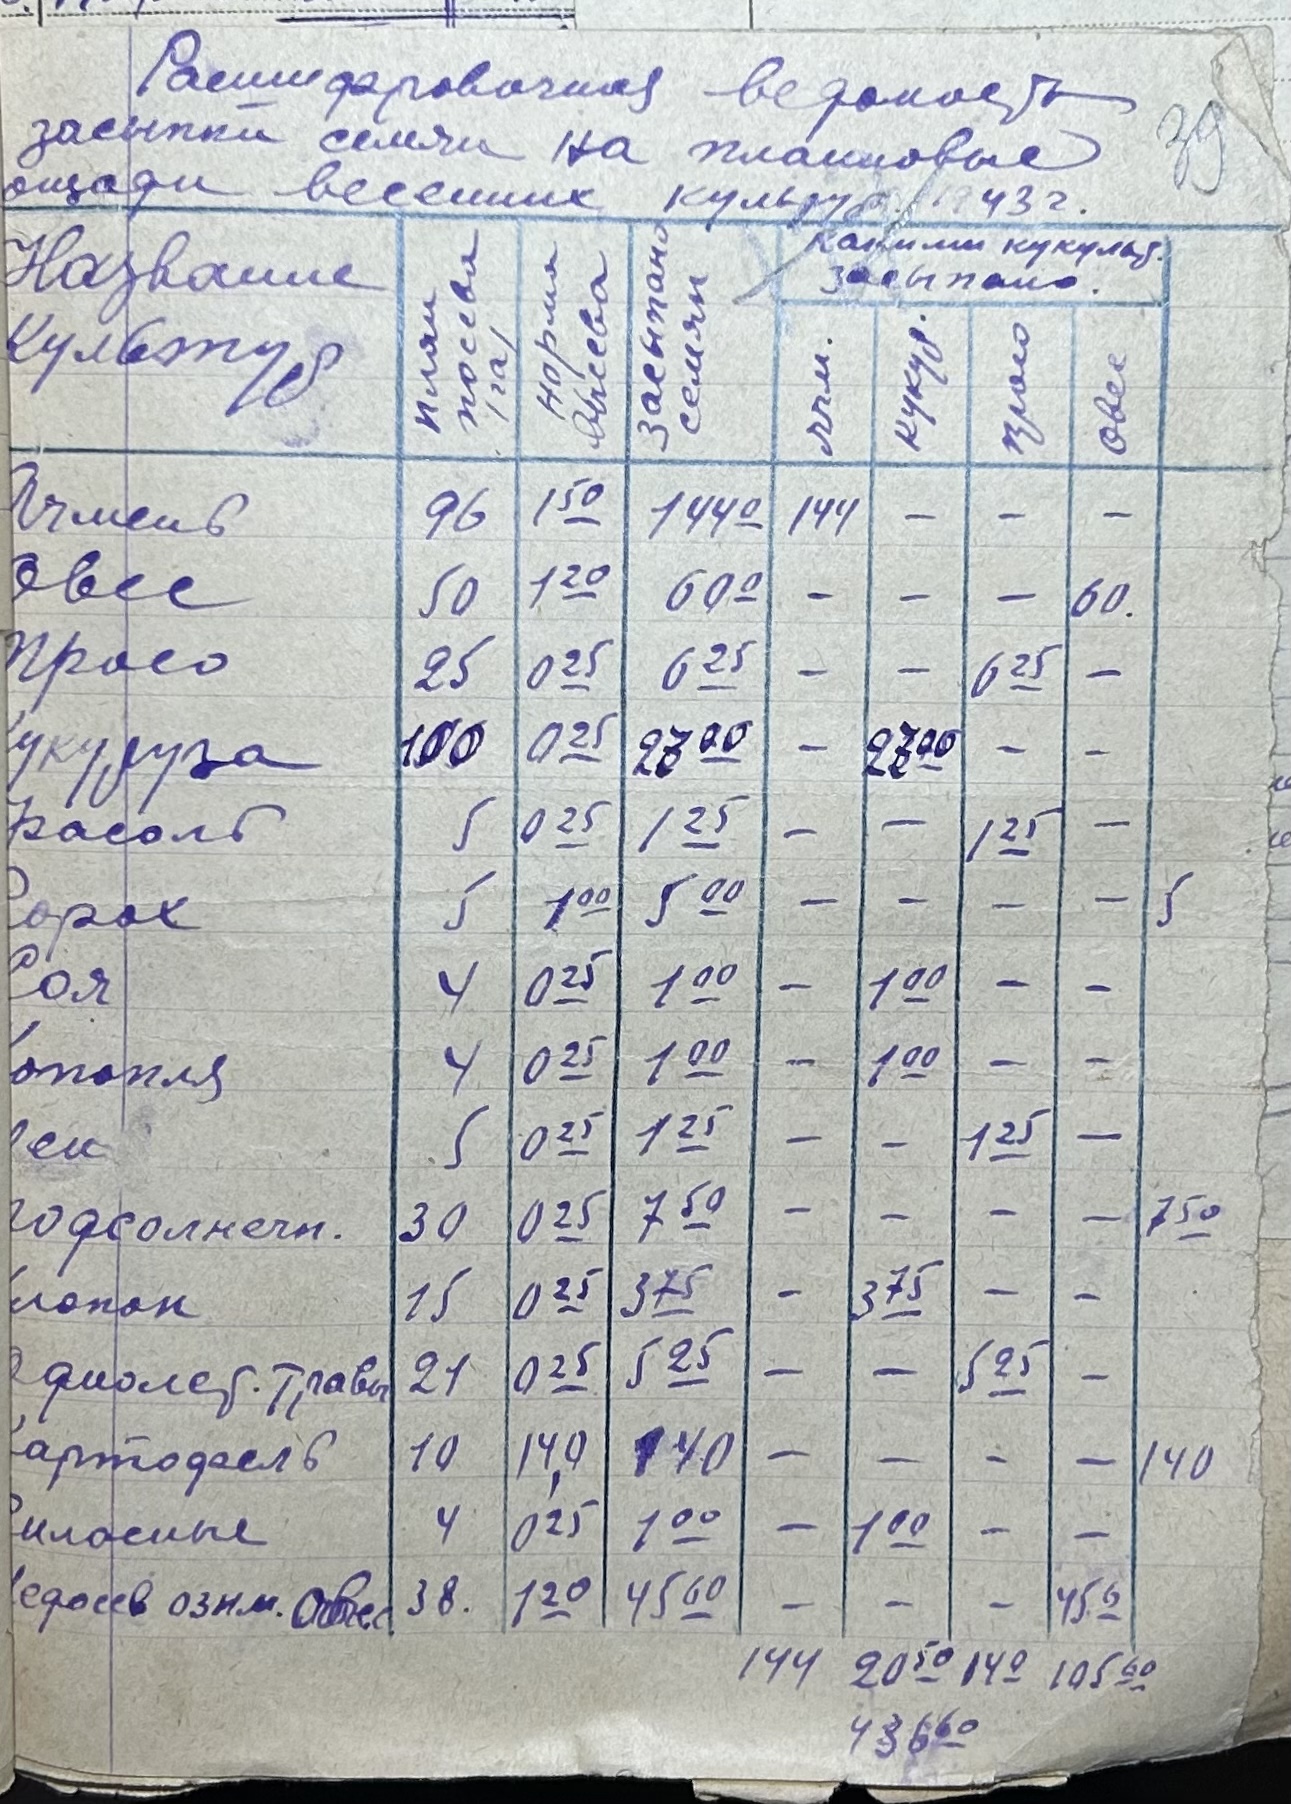 Расшифровочная ведомость
39
засыпки семян на плановые
ощади весенних культур. 1943 г.
Название Культур | План посева /га/ | Норма высева | Засыпано семян | Какими культ. засыпано.
ячм. | кукур. | просо | овес
Ячмень 96 1 50 144 0 144 – – –
Овес 50 1 20 60 0 – – – 60.
Просо 25 0 25 6 25 – – 6 25 –
укуруза 100 0 25 27 00 – 27 00 – –
расоль 5 0 25 1 25 – – 1 25 –
Горох 5 1 00 5 00 – – – – 5
Соя 4 0 25 1 00 – 1 00 – –
онопля 4 0 25 1 00 – 1 00 – –
лен 5 0 25 1 25 – – 1 25 –
подсолнечн. 30 0 25 7 50 – – – – 7 50
лопок 15 0 25 3 75 – 3 75 – –
днолет. травы 21 0 25 5 25 – – 5 25 –
артофель 10 14,0 140 – – – – 140
Силосные 4 0 25 1 00 – 1 00 – –
едосев озим. Овес 38. 1 20 45 60 – – – 45 6
144 20 50 14 0 105 60
436 60